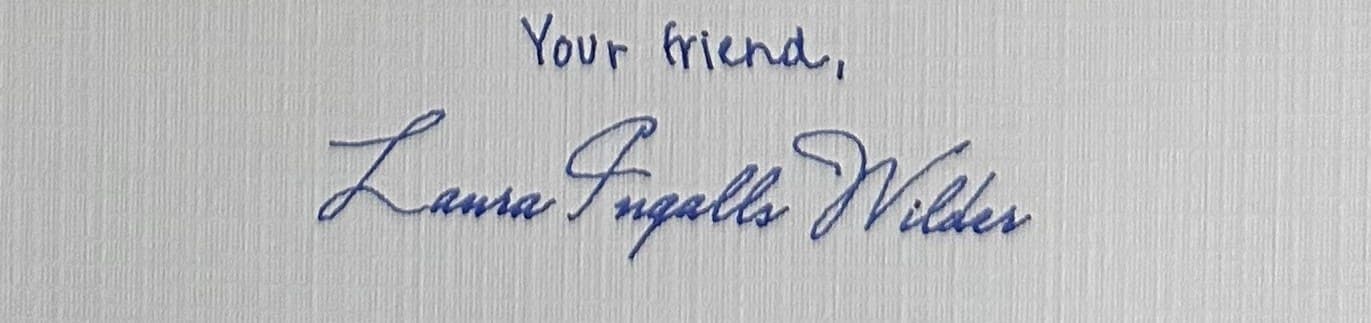 Your friend,
Laura Ingalls Wilder